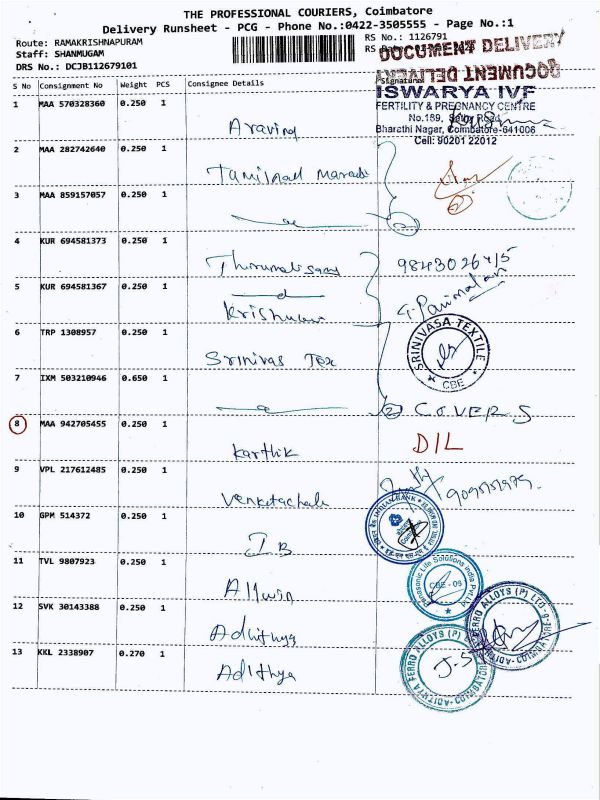 THE PROFESSIONAL COURIERS, Coimbatore
Delivery Runsheet - PCG - Phone No.:0422-3505555 - Page No.:1
Route: RAMAKRISHNAPURAM
Staff: SHANMUGAM
DRS No.: DCJB112679101
RS No.: 1126791
DOCUMENT DELIVERY
DOCUMENT DELIVERY
S No Consignment No Weight PCS Consignee Details Signature
ISWARYA IVF
FERTILITY & PREGNANCY CENTRE
No.189, Sathy Road,
Bharathi Nagar, Coimbatore-641006
Cell: 90201 22012
1 MAA 570328360 0.250 1
Aravind
2 MAA 282742640 0.250 1
Tamilnad
3 MAA 859157057 0.250 1
4 KUR 694581373 0.250 1
5 KUR 694581367 0.250 1
Krishna
6 TRP 1308957 0.250 1
Srinivas Tex
SRINIVASA TEXTILE
CBE
7 IXM 503210946 0.650 1
2 COVERS
8 MAA 942705455 0.250 1
Karthik
DIL
9 VPL 217612485 0.250 1
10 GPM 514372 0.250 1
I B
INDIAN BANK
11 TVL 9807923 0.250 1
Allwin
Panasonic Life Solutions India Pvt Ltd
CBE - 06
12 SVK 30143388 0.250 1
Adhithya
ADITHYA FERRO ALLOYS (P) LTD
COIMBATORE
13 KKL 2338907 0.270 1
Adithya
ADITHYA FERRO ALLOYS (P)
COIMBATORE